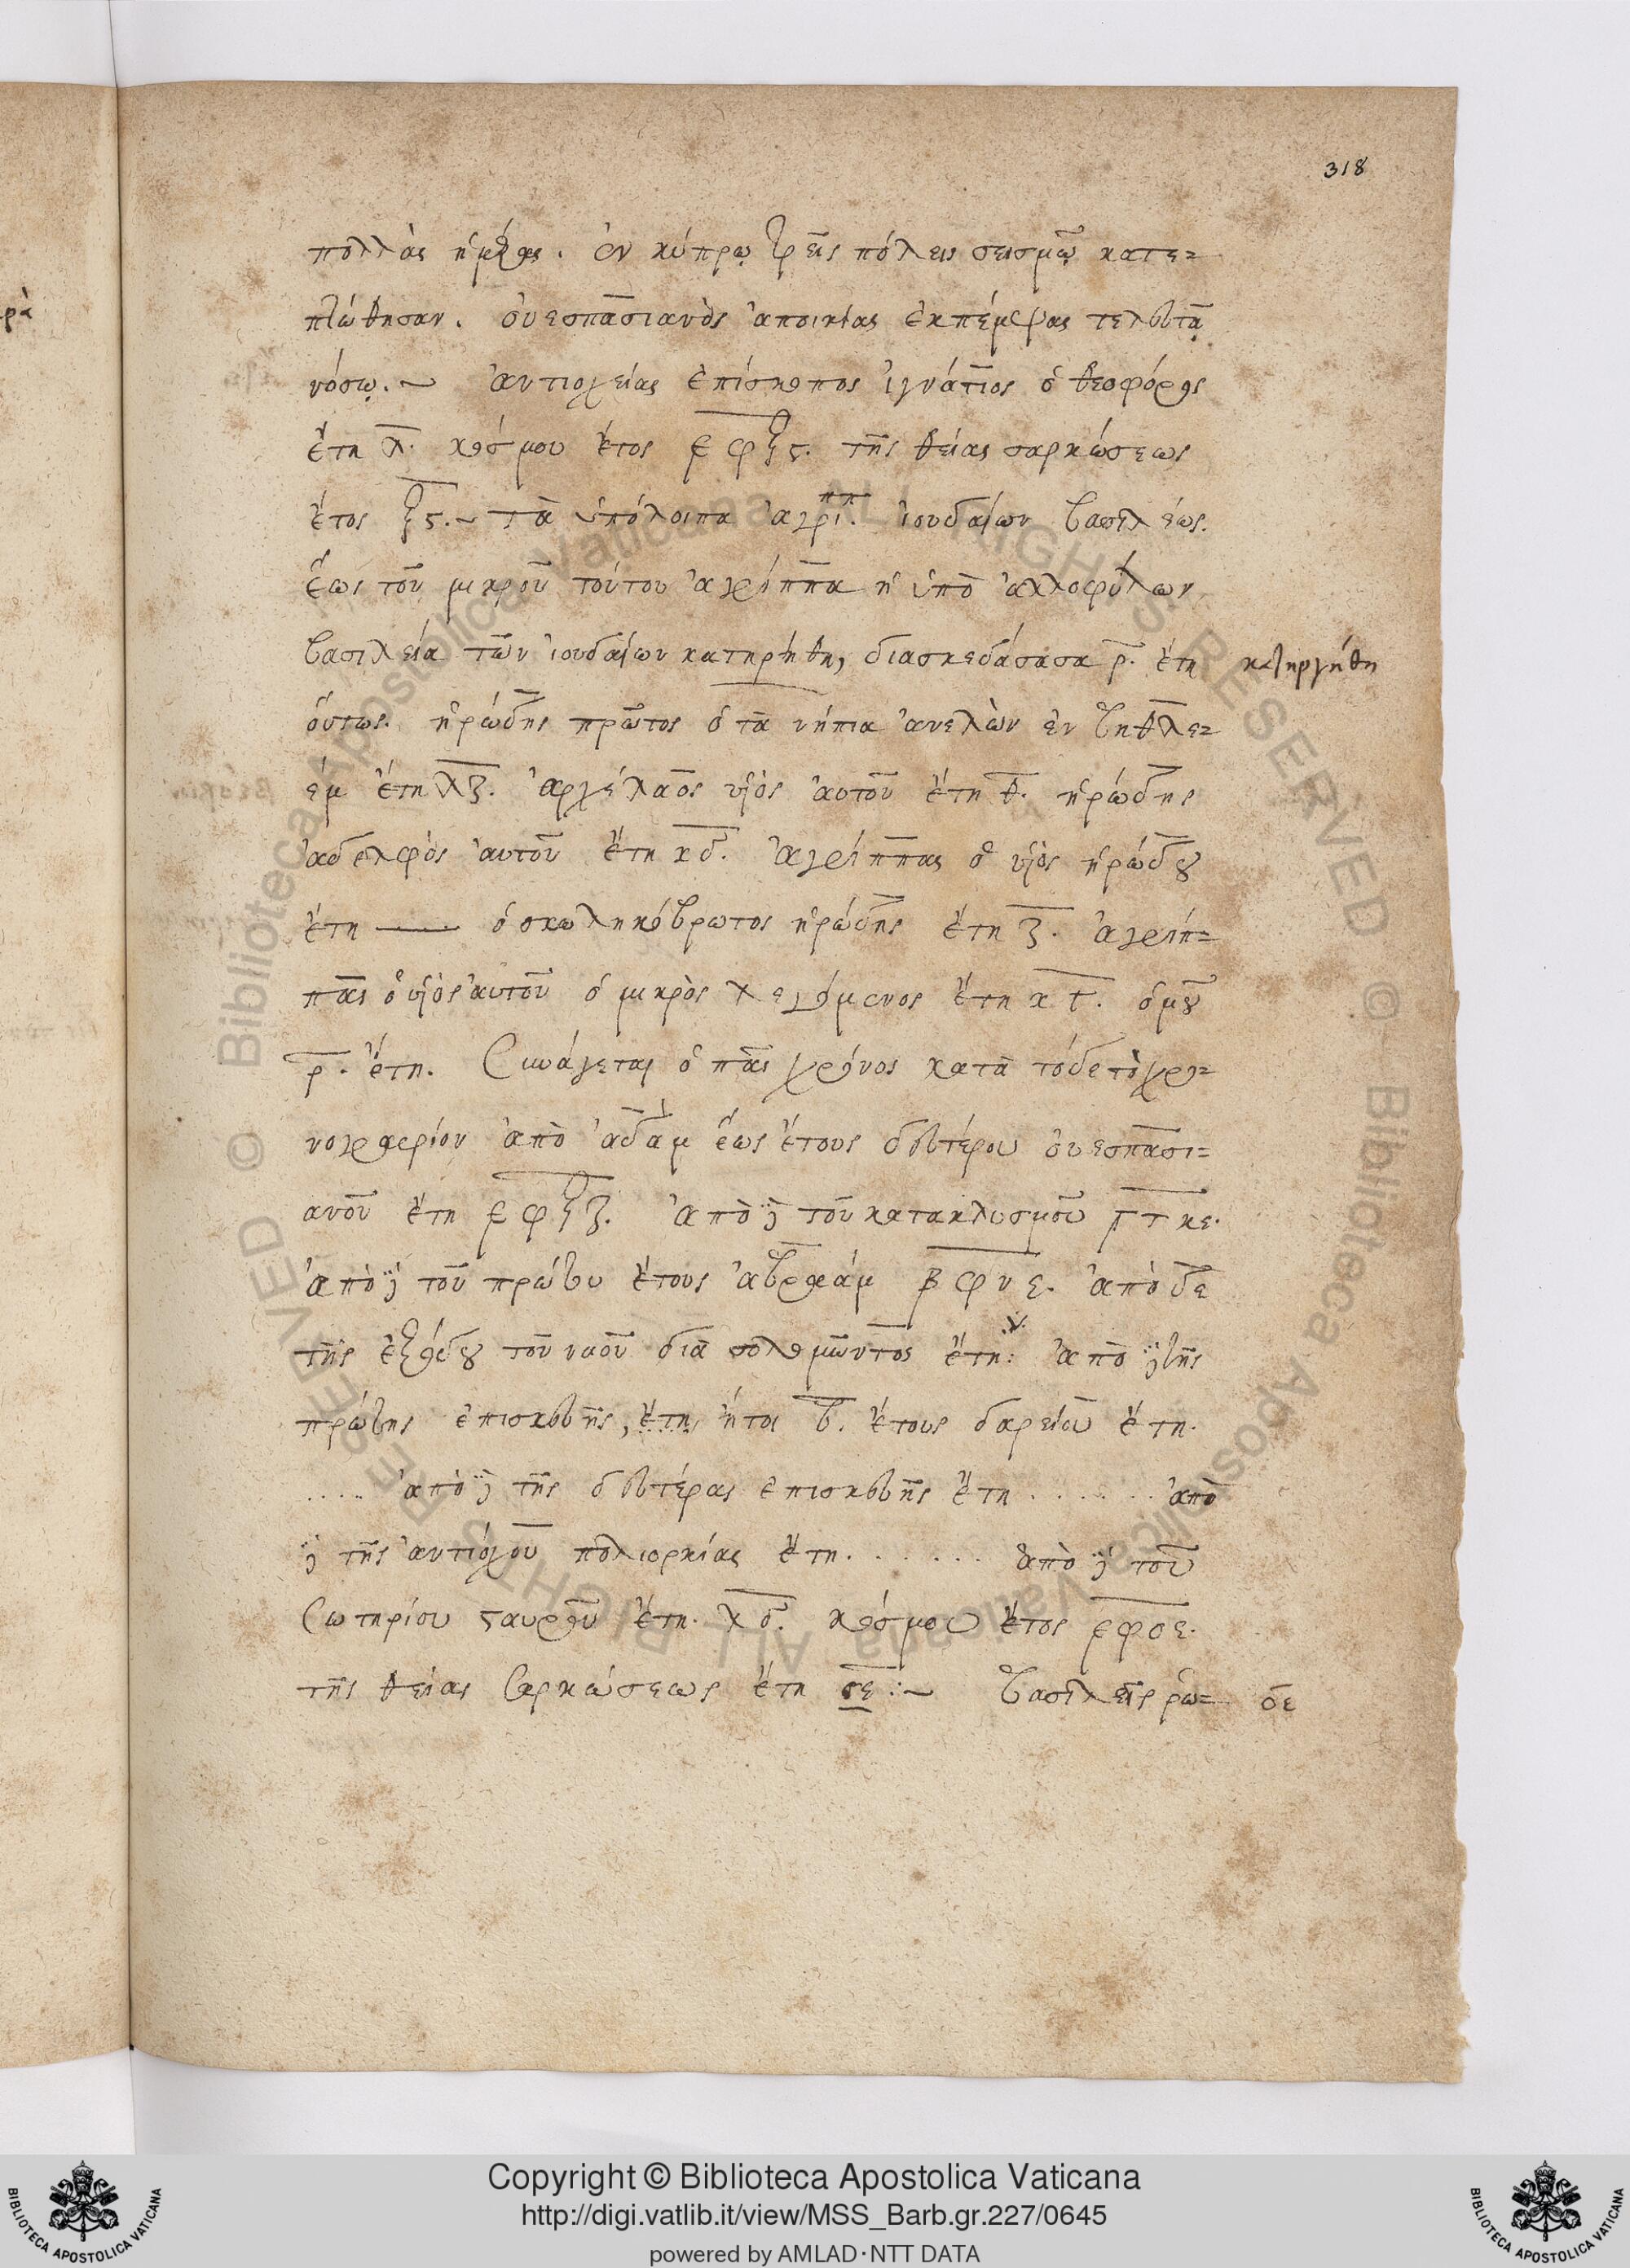 318
πολλὰς ἡμέρας. ἐν κύπρῳ τρεῖς πόλεις σεισμῷ κατε=
πτώθησαν. οὐεσπασιανὸς ἀποικίας ἐκπέμψας τελευτᾷ
νόσῳ.~ ἀντιοχείας ἐπίσκοπος ἰγνάτιος ὁ θεοφόρος
ἔτη λ. κόσμου ἔτος εφξς. τῆς θείας σαρκώσεως
ἔτος ξς.~ τὰ ὑπόλοιπα ἀγρίππ. ἰουδαίων βασιλέως.
ἕως τοῦ μικροῦ τούτου ἀγρίππα ἡ ὑπὸ ἀλλοφύλων
βασιλεία τῶν ἰουδαίων κατηρήθη, διασκεδάσασα ρ. ἔτη κατηργήθη
οὕτως. ἡρώδης πρῶτος ὁ τὰ νήπια ἀνελὼν ἐν βηθλε=
εμ ἔτη λζ. ἀρχέλαος υἱὸς αὐτοῦ ἔτη θ. ἡρώδης
ἀδελφὸς αὐτοῦ ἔτη κδ. ἀγρίππας ὁ υἱὸς ἡρώδου
ἔτη — ὁ σκωληκόβρωτος ἡρώδης ἔτη ζ. ἀγρίπ=
πας ὁ υἱὸς αὐτοῦ ὁ μικρὸς λεγόμενος ἔτη κγ. ὁμοῦ
ρ. ἔτη. Συνάγεται ὁ πᾶς χρόνος κατὰ τόδε τὸ χρο=
νογραφίον ἀπὸ ἀδὰμ ἕως ἔτους δευτέρου οὐεσπασι=
ανοῦ ἔτη εφξζ. ἀπὸ δὲ τοῦ κατακλυσμοῦ γτκε.
ἀπὸ δὲ τοῦ πρώτου ἔτους ἀβραάμ βφνε. ἀπὸ δε
τῆς ἐξόδου τοῦ ναοῦ διὰ σολομῶντος ἔτη: ἀπὸ δὲ τῆς
πρώτης ἐπισκευῆς, ἔτη ἤτοι β. ἔτους δαρείου ἔτη.
..... ἀπὸ δὲ τῆς δευτέρας ἐπισκευῆς ἔτη ...... ἀπὸ
δὲ τῆς ἀντιόχου πολιορκίας ἔτη. ...... ἀπὸ δὲ τοῦ
Σωτηρίου ςαυροῦ ἔτη. λδ. κόσμου ἔτος εφοε.
τῆς θείας σαρκώσεως ἔτη οε :~ βασιλεῖς ῥω= οε
Copyright © Biblioteca Apostolica Vaticana
http://digi.vatlib.it/view/MSS_Barb.gr.227/0645
powered by AMLAD·NTT DATA
BIBLIOTECA APOSTOLICA VATICANA
BIBLIOTECA APOSTOLICA VATICANA